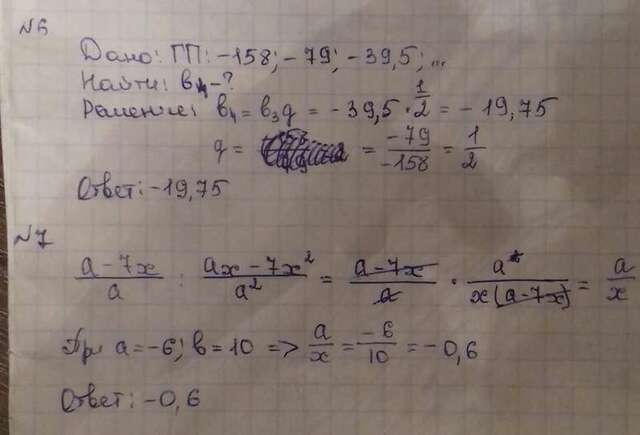 №6
Дано: ГП: -158; -79; -39,5; ...
Найти: b₄-?
Решение: b₄ = b₃q = -39,5 · 1/2 = -19,75
q = = -79/-158 = 1/2
Ответ: -19,75
№7
a-7x/a : ax-7x²/a² = a-7x/a · a²/x(a-7x) = a/x
При a=-6; b=10 => a/x = -6/10 = -0,6
Ответ: -0,6